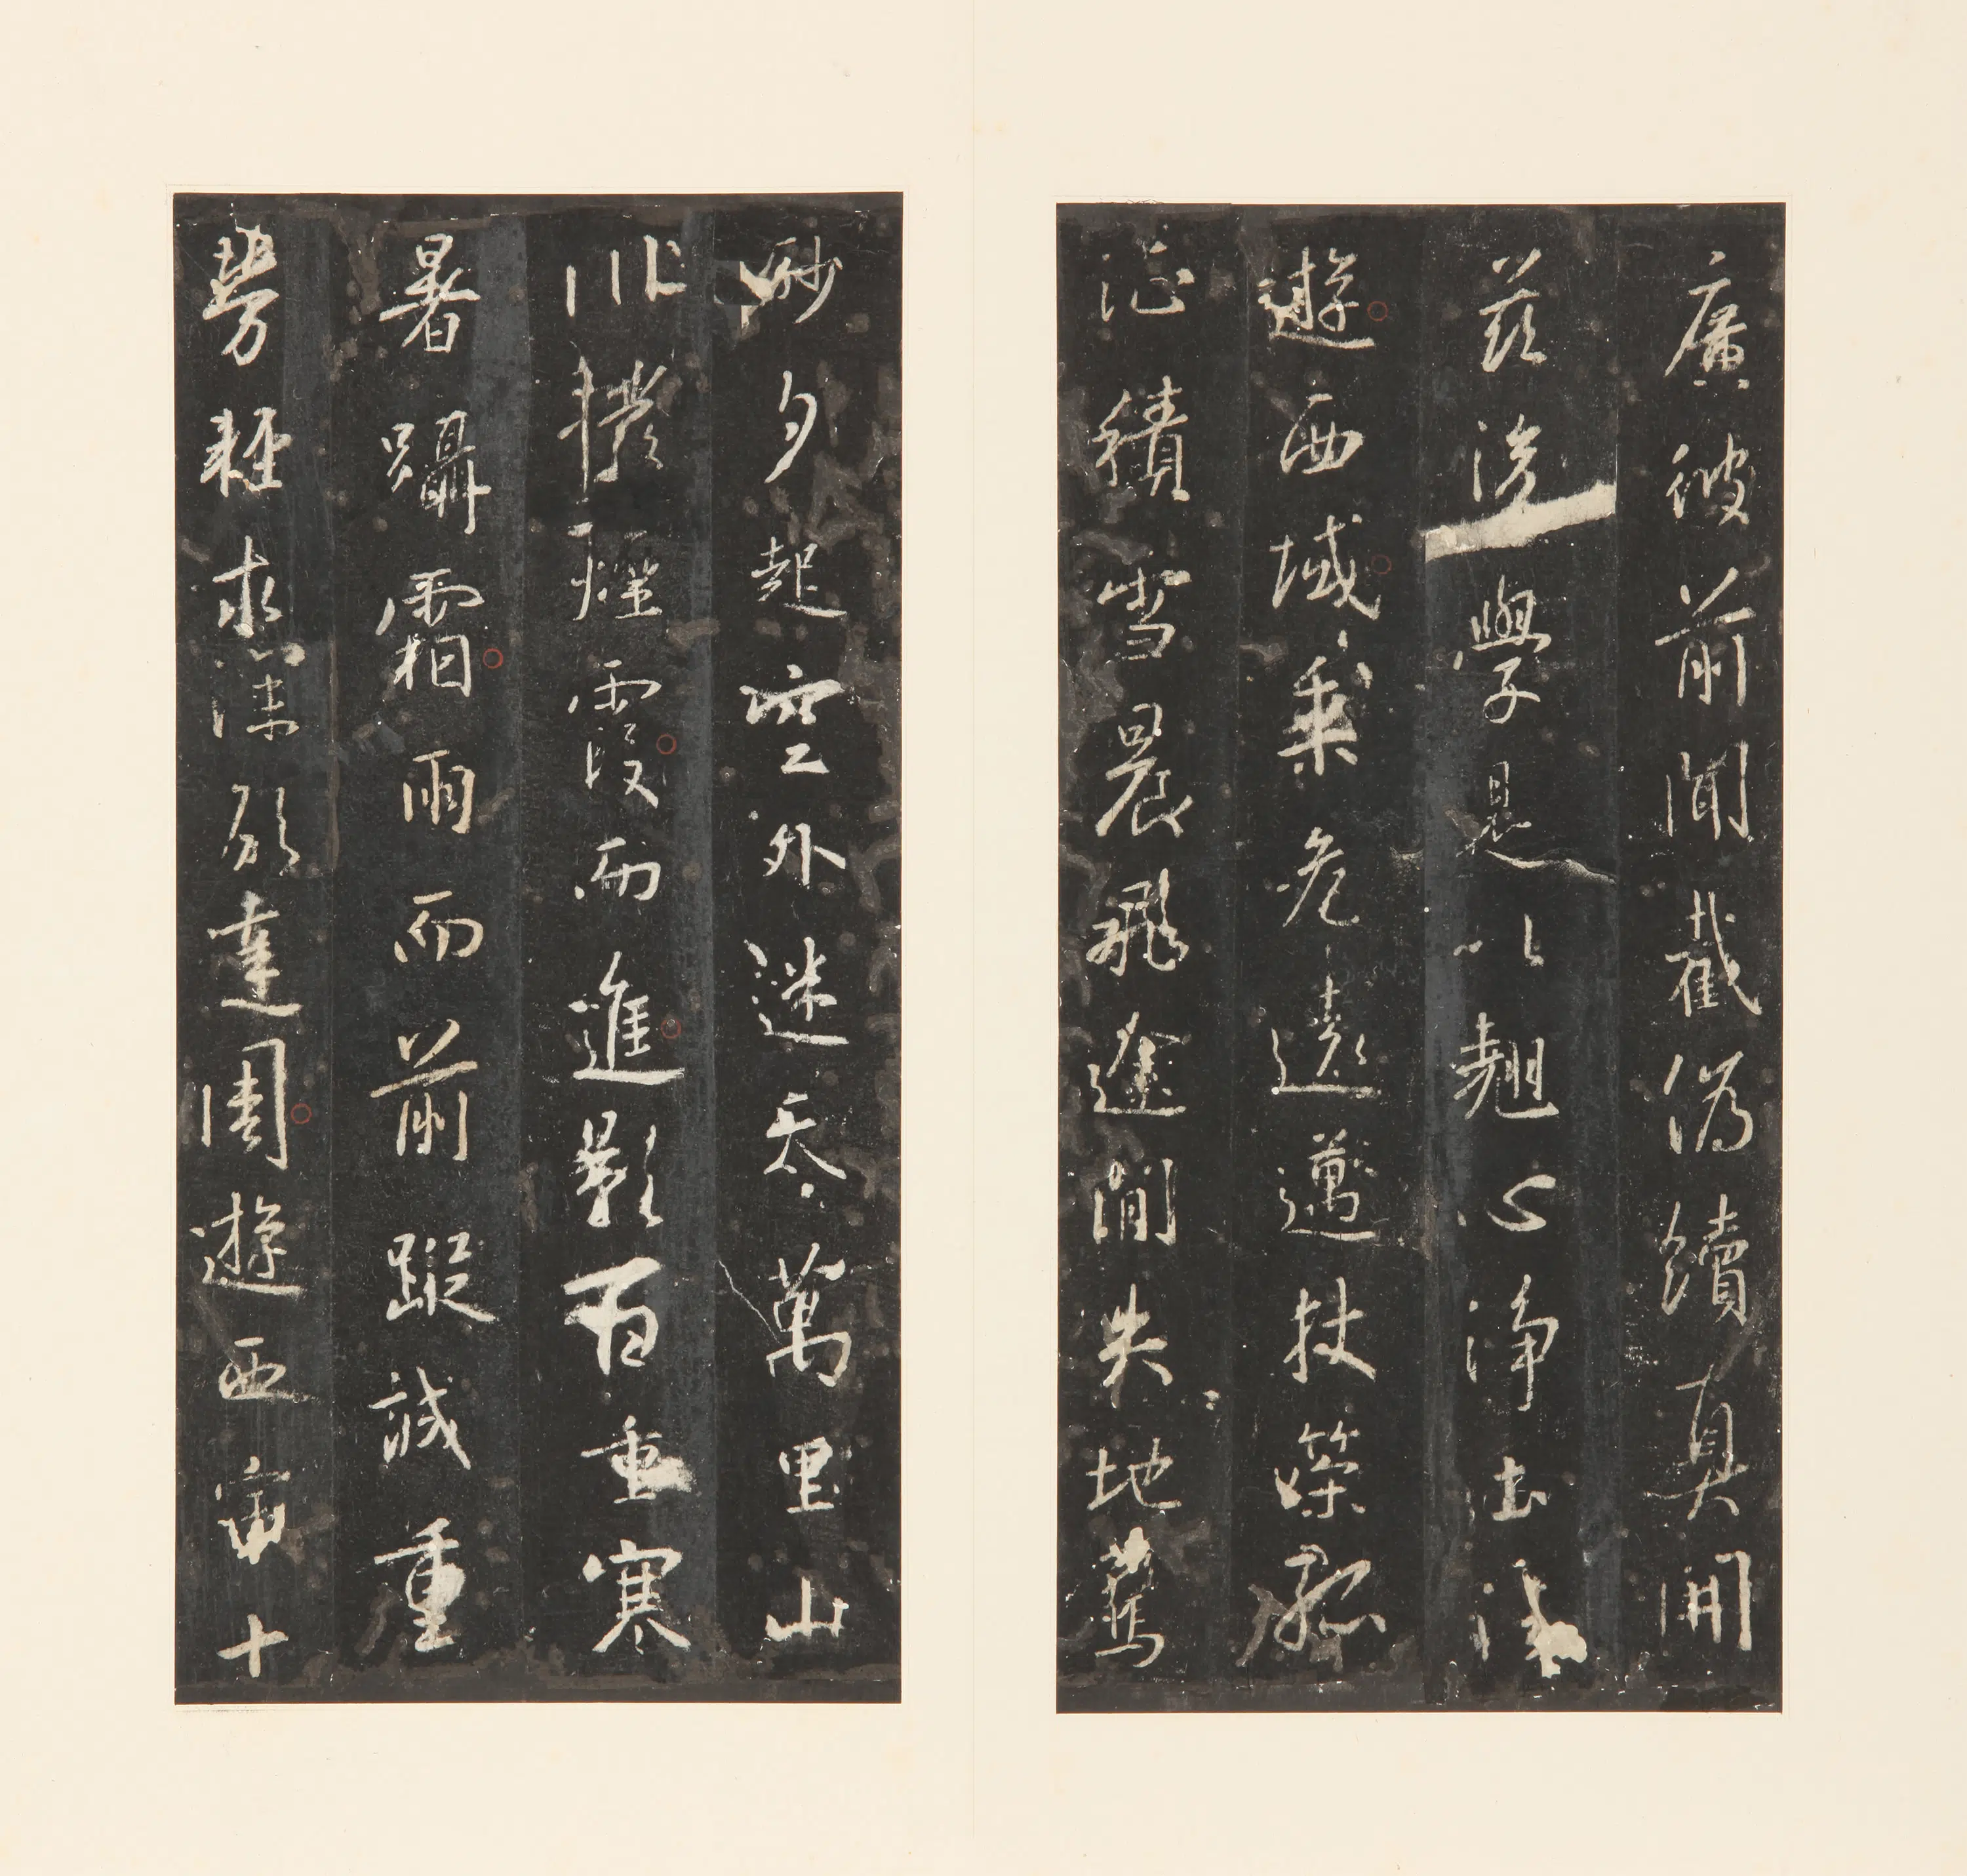 廣彼前聞截偽續真開
茲後學是以翹心淨土法
遊西域乘危遠邁杖策孤
征積雪晨飛途閒失地驚
砂夕起空外迷天萬里山
川撥煙霞而進影百重寒
暑躡霜雨而前蹤誠重
勞輕求深願達周遊西宇十